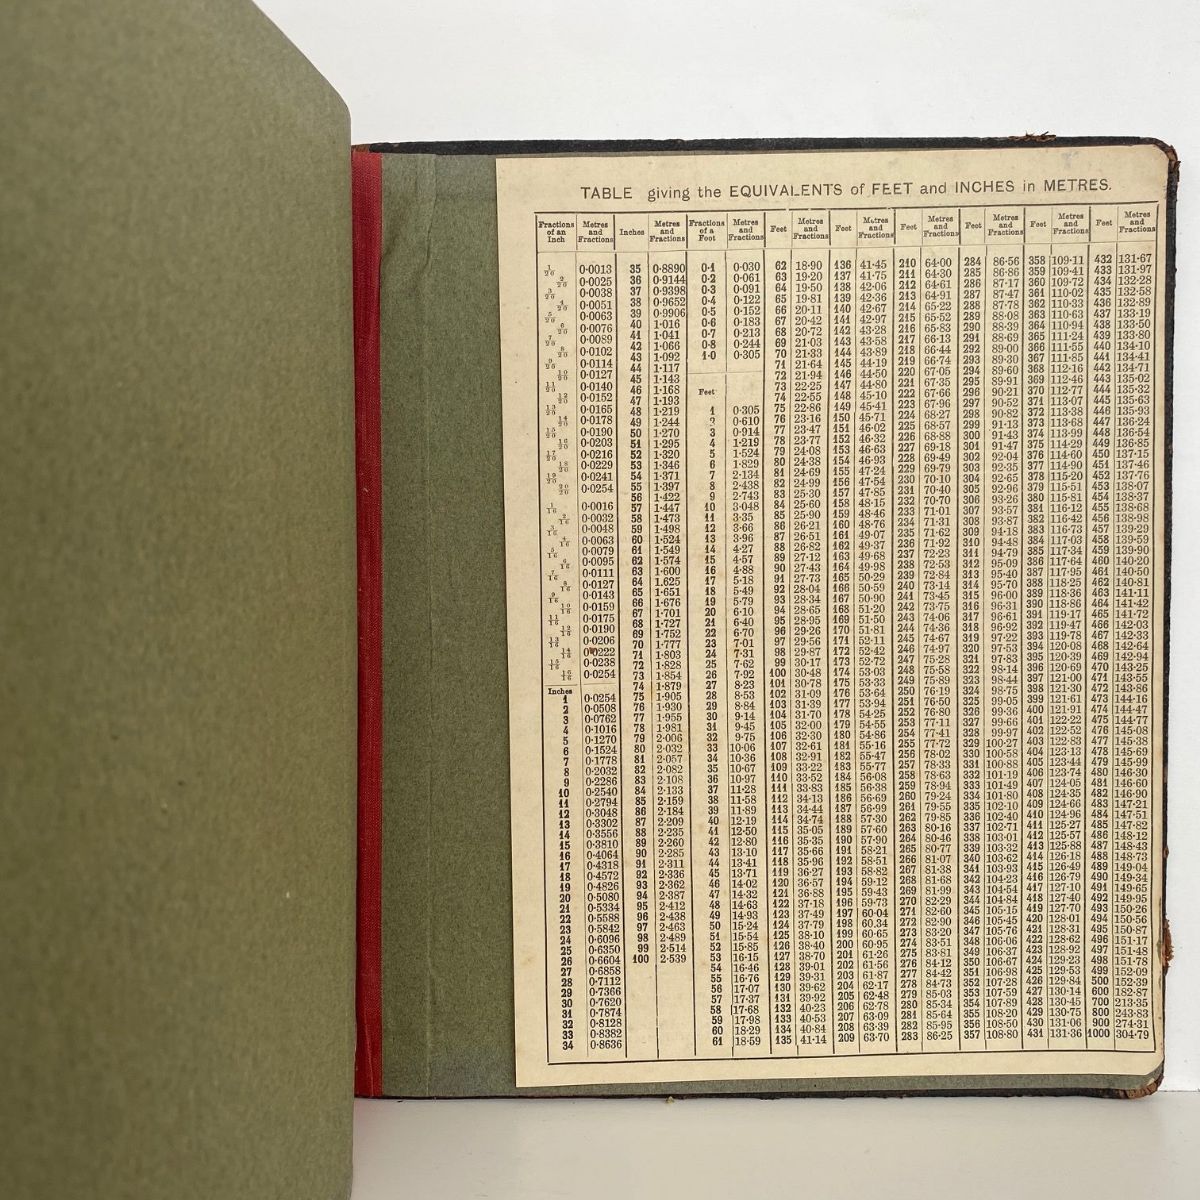 TABLE giving the EQUIVALENTS of FEET and INCHES in METRES.
Fractions of an Inch Metres and Fractions
1/20 0·0013
2/20 0·0025
3/20 0·0038
4/20 0·0051
5/20 0·0063
6/20 0·0076
7/20 0·0089
8/20 0·0102
9/20 0·0114
10/20 0·0127
11/20 0·0140
12/20 0·0152
13/20 0·0165
14/20 0·0178
15/20 0·0190
16/20 0·0203
17/20 0·0216
18/20 0·0229
19/20 0·0241
20/20 0·0254
1/16 0·0016
2/16 0·0032
3/16 0·0048
4/16 0·0063
5/16 0·0079
6/16 0·0095
7/16 0·0111
8/16 0·0127
9/16 0·0143
10/16 0·0159
11/16 0·0175
12/16 0·0190
13/16 0·0206
14/16 0·0222
15/16 0·0238
16/16 0·0254
Inches
1 0·0254
2 0·0508
3 0·0762
4 0·1016
5 0·1270
6 0·1524
7 0·1778
8 0·2032
9 0·2286
10 0·2540
11 0·2794
12 0·3048
13 0·3302
14 0·3556
15 0·3810
16 0·4064
17 0·4318
18 0·4572
19 0·4826
20 0·5080
21 0·5334
22 0·5588
23 0·5842
24 0·6096
25 0·6350
26 0·6604
27 0·6858
28 0·7112
29 0·7366
30 0·7620
31 0·7874
32 0·8128
33 0·8382
34 0·8636
Inches Metres and Fractions
35 0·8890
36 0·9144
37 0·9398
38 0·9652
39 0·9906
40 1·016
41 1·041
42 1·066
43 1·092
44 1·117
45 1·143
46 1·168
47 1·193
48 1·219
49 1·244
50 1·270
51 1·295
52 1·320
53 1·346
54 1·371
55 1·397
56 1·422
57 1·447
58 1·473
59 1·498
60 1·524
61 1·549
62 1·574
63 1·600
64 1·625
65 1·651
66 1·676
67 1·701
68 1·727
69 1·752
70 1·777
71 1·803
72 1·828
73 1·854
74 1·879
75 1·905
76 1·930
77 1·955
78 1·981
79 2·006
80 2·032
81 2·057
82 2·082
83 2·108
84 2·133
85 2·159
86 2·184
87 2·209
88 2·235
89 2·260
90 2·285
91 2·311
92 2·336
93 2·362
94 2·387
95 2·412
96 2·438
97 2·463
98 2·489
99 2·514
100 2·539
Fractions of a Foot Metres and Fractions
0·1 0·030
0·2 0·061
0·3 0·091
0·4 0·122
0·5 0·152
0·6 0·183
0·7 0·213
0·8 0·244
1·0 0·305
Feet
1 0·305
2 0·610
3 0·914
4 1·219
5 1·524
6 1·829
7 2·134
8 2·438
9 2·743
10 3·048
11 3·35
12 3·66
13 3·96
14 4·27
15 4·57
16 4·88
17 5·18
18 5·49
19 5·79
20 6·10
21 6·40
22 6·70
23 7·01
24 7·31
25 7·62
26 7·92
27 8·23
28 8·53
29 8·84
30 9·14
31 9·45
32 9·75
33 10·06
34 10·36
35 10·67
36 10·97
37 11·28
38 11·58
39 11·89
40 12·19
41 12·50
42 12·80
43 13·10
44 13·41
45 13·71
46 14·02
47 14·32
48 14·63
49 14·93
50 15·24
51 15·54
52 15·85
53 16·15
54 16·46
55 16·76
56 17·07
57 17·37
58 17·68
59 17·98
60 18·29
61 18·59
Feet Metres and Fractions
62 18·90
63 19·20
64 19·50
65 19·81
66 20·11
67 20·42
68 20·72
69 21·03
70 21·33
71 21·64
72 21·94
73 22·25
74 22·55
75 22·86
76 23·16
77 23·47
78 23·77
79 24·08
80 24·38
81 24·69
82 24·99
83 25·30
84 25·60
85 25·90
86 26·21
87 26·51
88 26·82
89 27·12
90 27·43
91 27·73
92 28·04
93 28·34
94 28·65
95 28·95
96 29·26
97 29·56
98 29·87
99 30·17
100 30·48
101 30·78
102 31·09
103 31·39
104 31·70
105 32·00
106 32·30
107 32·61
108 32·91
109 33·22
110 33·52
111 33·83
112 34·13
113 34·44
114 34·74
115 35·05
116 35·35
117 35·66
118 35·96
119 36·27
120 36·57
121 36·88
122 37·18
123 37·49
124 37·79
125 38·10
126 38·40
127 38·70
128 39·01
129 39·31
130 39·62
131 39·92
132 40·23
133 40·53
134 40·84
135 41·14
Feet Metres and Fractions
136 41·45
137 41·75
138 42·06
139 42·36
140 42·67
141 42·97
142 43·28
143 43·58
144 43·89
145 44·19
146 44·50
147 44·80
148 45·10
149 45·41
150 45·71
151 46·02
152 46·32
153 46·63
154 46·93
155 47·24
156 47·54
157 47·85
158 48·15
159 48·46
160 48·76
161 49·07
162 49·37
163 49·68
164 49·98
165 50·29
166 50·59
167 50·90
168 51·20
169 51·50
170 51·81
171 52·11
172 52·42
173 52·72
174 53·03
175 53·33
176 53·64
177 53·94
178 54·25
179 54·55
180 54·86
181 55·16
182 55·47
183 55·77
184 56·08
185 56·38
186 56·69
187 56·99
188 57·30
189 57·60
190 57·90
191 58·21
192 58·51
193 58·82
194 59·12
195 59·43
196 59·73
197 60·04
198 60.34
199 60·65
200 60·95
201 61·26
202 61·56
203 61·87
204 62·17
205 62·48
206 62·78
207 63·09
208 63·39
209 63·70
Feet Metres and Fractions
210 64·00
211 64·30
212 64·61
213 64·91
214 65·22
215 65·52
216 65·83
217 66·13
218 66·44
219 66·74
220 67·05
221 67·35
222 67·66
223 67·96
224 68·27
225 68·57
226 68·88
227 69·18
228 69·49
229 69·79
230 70·10
231 70·40
232 70·70
233 71·01
234 71·31
235 71·62
236 71·92
237 72·23
238 72·53
239 72·84
240 73·14
241 73·45
242 73·75
243 74·06
244 74·36
245 74·67
246 74·97
247 75·28
248 75·58
249 75·89
250 76·19
251 76·50
252 76·80
253 77·11
254 77·41
255 77·72
256 78·02
257 78·33
258 78·63
259 78·94
260 79·24
261 79·55
262 79·85
263 80·16
264 80·46
265 80·77
266 81·07
267 81·38
268 81·68
269 81·99
270 82·29
271 82·60
272 82·90
273 83·20
274 83·51
275 83·81
276 84·12
277 84·42
278 84·73
279 85·03
280 85·34
281 85·64
282 85·95
283 86·25
Feet Metres and Fractions
284 86·56
285 86·86
286 87·17
287 87·47
288 87·78
289 88·08
290 88·39
291 88·69
292 89·00
293 89·30
294 89·60
295 89·91
296 90·21
297 90·52
298 90·82
299 91·13
300 91·43
301 91·47
302 92·04
303 92·35
304 92·65
305 92·96
306 93·26
307 93·57
308 93·87
309 94·18
310 94·48
311 94·79
312 95·09
313 95·40
314 95·70
315 96·00
316 96·31
317 96·61
318 96·92
319 97·22
320 97·53
321 97·83
322 98·14
323 98·44
324 98·75
325 99·05
326 99·36
327 99·66
328 99·97
329 100·27
330 100·58
331 100·88
332 101·19
333 101·49
334 101·80
335 102·10
336 102·40
337 102·71
338 103·01
339 103·32
340 103·62
341 103·93
342 104·23
343 104·54
344 104·84
345 105·15
346 105·45
347 105·76
348 106·06
349 106·37
350 106·67
351 106·98
352 107·28
353 107·59
354 107·89
355 108·20
356 108·50
357 108·80
Feet Metres and Fractions
358 109·11
359 109·41
360 109·72
361 110·02
362 110·33
363 110·63
364 110·94
365 111·24
366 111·55
367 111·85
368 112·16
369 112·46
370 112·77
371 113·07
372 113·38
373 113·68
374 113·99
375 114·29
376 114·60
377 114·90
378 115·20
379 115·51
380 115·81
381 116·12
382 116·42
383 116·73
384 117·03
385 117·34
386 117·64
387 117·95
388 118·25
389 118·36
390 118·86
391 119·17
392 119·47
393 119·78
394 120·08
395 120·39
396 120·69
397 121·00
398 121·30
399 121·61
400 121·91
401 122·22
402 122·52
403 122·83
404 123·13
405 123·44
406 123·74
407 124·05
408 124·35
409 124·66
410 124·96
411 125·27
412 125·57
413 125·88
414 126·18
415 126·49
416 126·79
417 127·10
418 127·40
419 127·70
420 128·01
421 128·31
422 128·62
423 128·92
424 129·23
425 129·53
426 129·84
427 130·14
428 130·45
429 130·75
430 131·06
431 131·36
Feet Metres and Fractions
432 131·67
433 131·97
434 132·28
435 132·58
436 132·89
437 133·19
438 133·50
439 133·80
440 134·10
441 134·41
442 134·71
443 135·02
444 135·32
445 135·63
446 135·93
447 136·24
448 136·54
449 136·85
450 137·15
451 137·46
452 137·76
453 138·07
454 138·37
455 138·68
456 138·98
457 139·29
458 139·59
459 139·90
460 140·20
461 140·50
462 140·81
463 141·11
464 141·42
465 141·72
466 142·03
467 142·33
468 142·64
469 142·94
470 143·25
471 143·55
472 143·86
473 144·16
474 144·47
475 144·77
476 145·08
477 145·38
478 145·69
479 145·99
480 146·30
481 146·60
482 146·90
483 147·21
484 147·51
485 147·82
486 148·12
487 148·43
488 148·73
489 149·04
490 149·34
491 149·65
492 149·95
493 150·26
494 150·56
495 150·87
496 151·17
497 151·48
498 151·78
499 152·09
500 152·39
600 182·87
700 213·35
800 243·83
900 274·31
1000 304·79